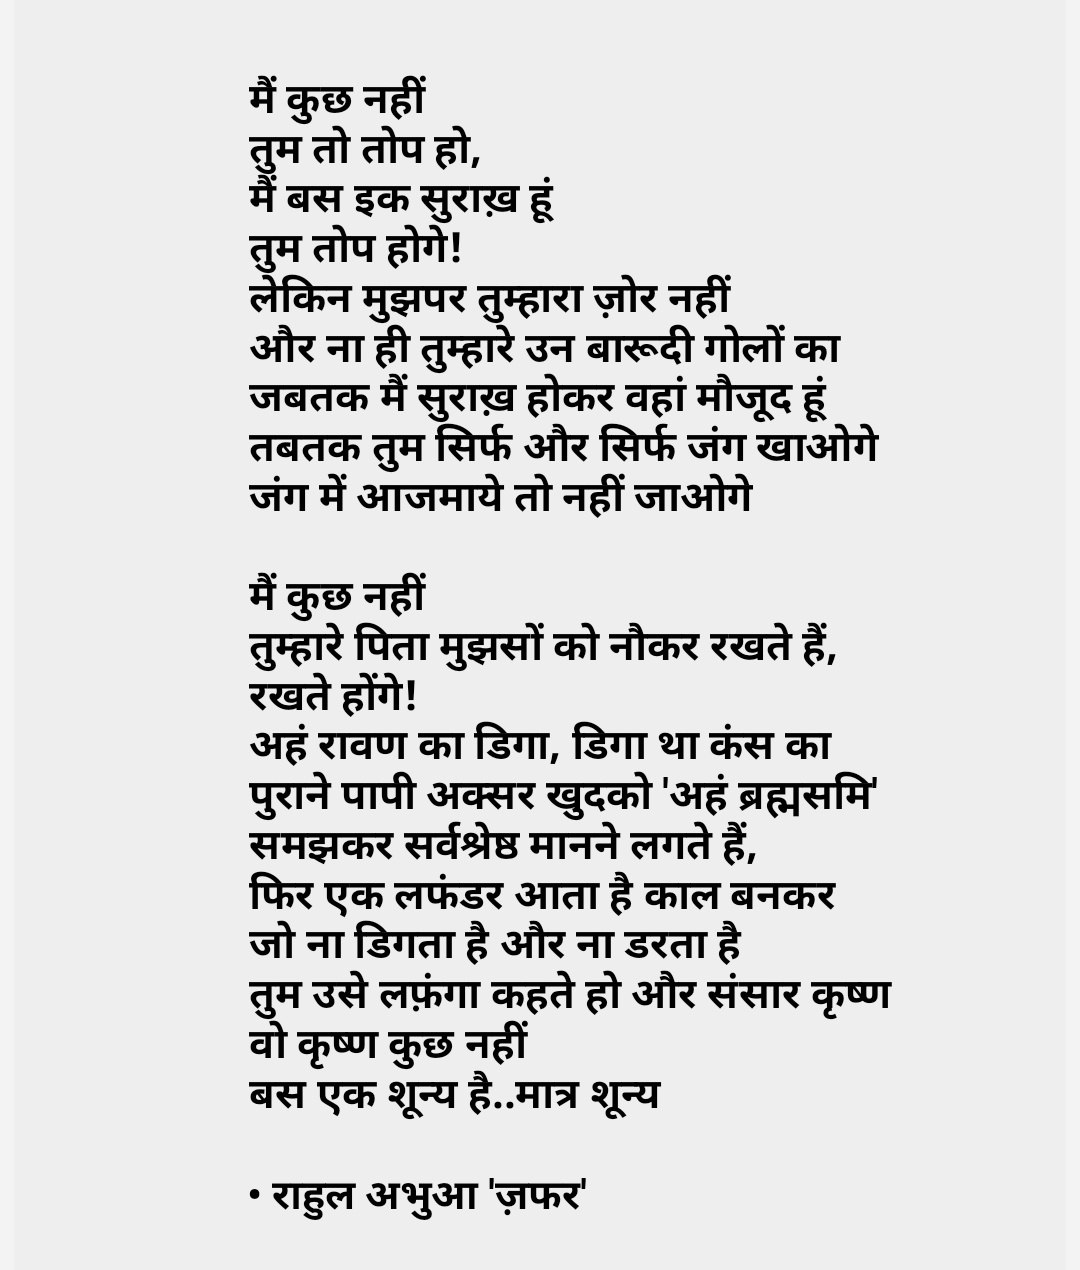 मैं कुछ नहीं
तुम तो तोप हो,
मैं बस इक सुराख़ हूं
तुम तोप होगे!
लेकिन मुझपर तुम्हारा ज़ोर नहीं
और ना ही तुम्हारे उन बारूदी गोलों का
जबतक मैं सुराख़ होकर वहां मौजूद हूं
तबतक तुम सिर्फ और सिर्फ जंग खाओगे
जंग में आजमाये तो नहीं जाओगे
मैं कुछ नहीं
तुम्हारे पिता मुझसों को नौकर रखते हैं,
रखते होंगे!
अहं रावण का डिगा, डिगा था कंस का
पुराने पापी अक्सर खुदको 'अहं ब्रह्मसमि'
समझकर सर्वश्रेष्ठ मानने लगते हैं,
फिर एक लफंडर आता है काल बनकर
जो ना डिगता है और ना डरता है
तुम उसे लफ़ंगा कहते हो और संसार कृष्ण
वो कृष्ण कुछ नहीं
बस एक शून्य है..मात्र शून्य
• राहुल अभुआ 'ज़फर'